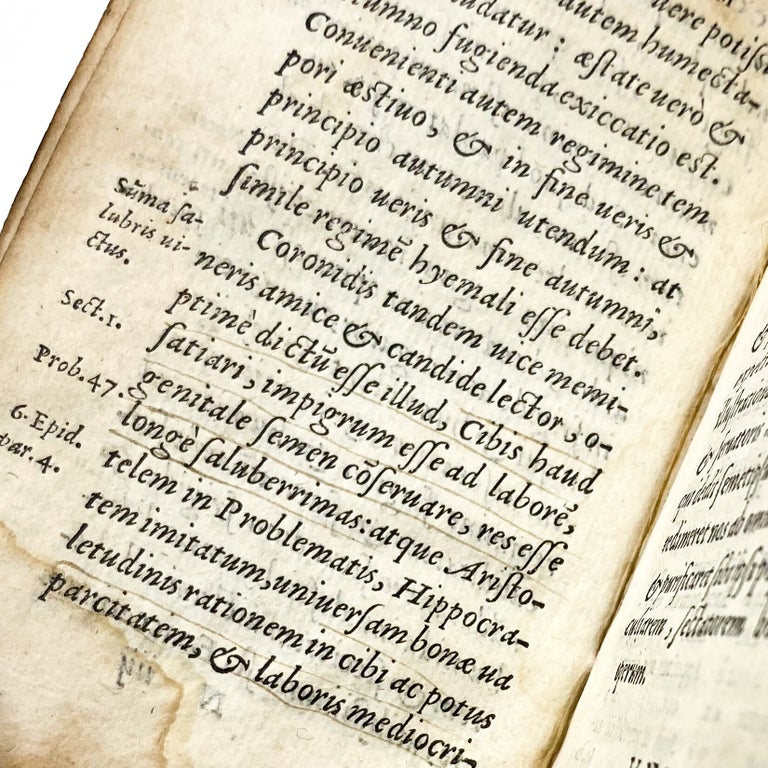 uere potiss
udatur: autem humecta-
tumno fugienda exiccatio est.
Conuenienti autem regimine tem
pori æstiuo, & in fine ueris &
principio autumni utendum: at
principio ueris & fine autumni,
simile regimē hyemali esse debet.
Coronidis tandem uice memi-
neris amice & candide lector, o-
ptimè dictū esse illud, Cibis haud
satiari, impigrum esse ad laborē,
genitale semen cōseruare, res esse
longè saluberrimas: atque Aristo-
telem in Problematis, Hippocra-
tem imitatum, uniuersam bonæ ua
letudinis rationem in cibi ac potus
parcitatem, & laboris mediocri-
Sūma sa-
lubris ui-
ctus.
Sect. 1.
Prob. 47.
6. Epid.
par. 4.
illustratione
& senatoris
qui dedit semetips
redimeret nos ab omn
& purificaret sibi ipsi po
cularem, sectatorem b
operum.